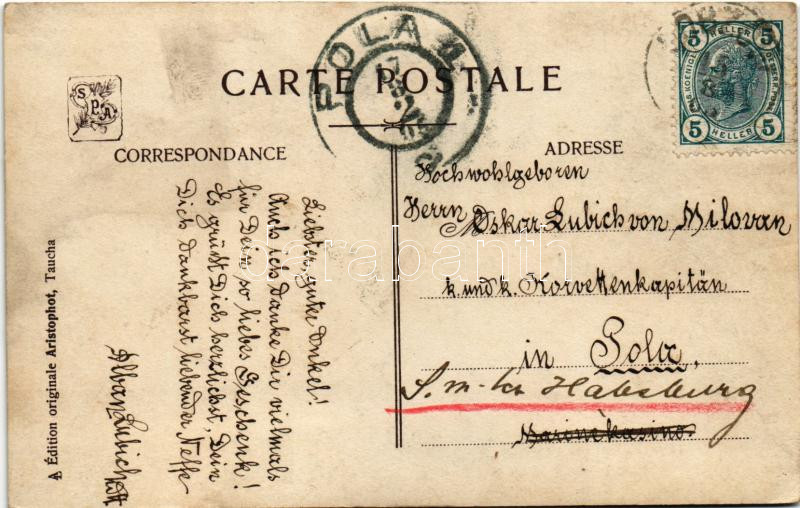 CARTE POSTALE
POLA
S. P. A.
5 HELLER 5
5 HELLER 5
CORRESPONDANCE
ADRESSE
Liebster, guter Onkel!
Auch ich danke Dir vielmals
für Dein so liebes Geschenk!
Es grüßt Dich herzlichst, Dein
Dich dankbarst liebender Neffe
Alban Lubich
Hochwohlgeboren
Herrn Oskar Lubich von Milovan
k. und k. Korvettenkapitän
in Pola,
S. m. Habsburg
Marinekasino
A Édition originale Aristophot, Taucha
darabanth